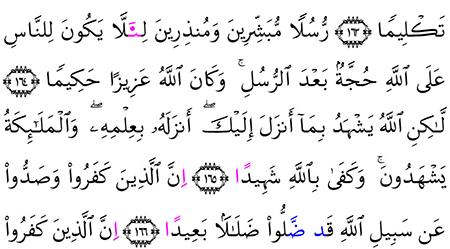 تَكْلِيمًا ﴿١٦٣﴾ رُّسُلًا مُّبَشِّرِينَ وَمُنذِرِينَ لِئَلَّا يَكُونَ لِلنَّاسِ
عَلَى ٱللَّهِ حُجَّةٌۢ بَعْدَ ٱلرُّسُلِ ۚ وَكَانَ ٱللَّهُ عَزِيزًا حَكِيمًا ﴿١٦٤﴾
لَّـٰكِنِ ٱللَّهُ يَشْهَدُ بِمَآ أَنزَلَ إِلَيْكَ ۖ أَنزَلَهُۥ بِعِلْمِهِۦ ۖ وَٱلْمَلَـٰٓئِكَةُ
يَشْهَدُونَ ۚ وَكَفَىٰ بِٱللَّهِ شَهِيدًا ﴿١٦٥﴾ إِنَّ ٱلَّذِينَ كَفَرُوا۟ وَصَدُّوا۟
عَن سَبِيلِ ٱللَّهِ قَد ضَّلُّوا۟ ضَلَـٰلًۢا بَعِيدًا ﴿١٦٦﴾ إِنَّ ٱلَّذِينَ كَفَرُوا۟